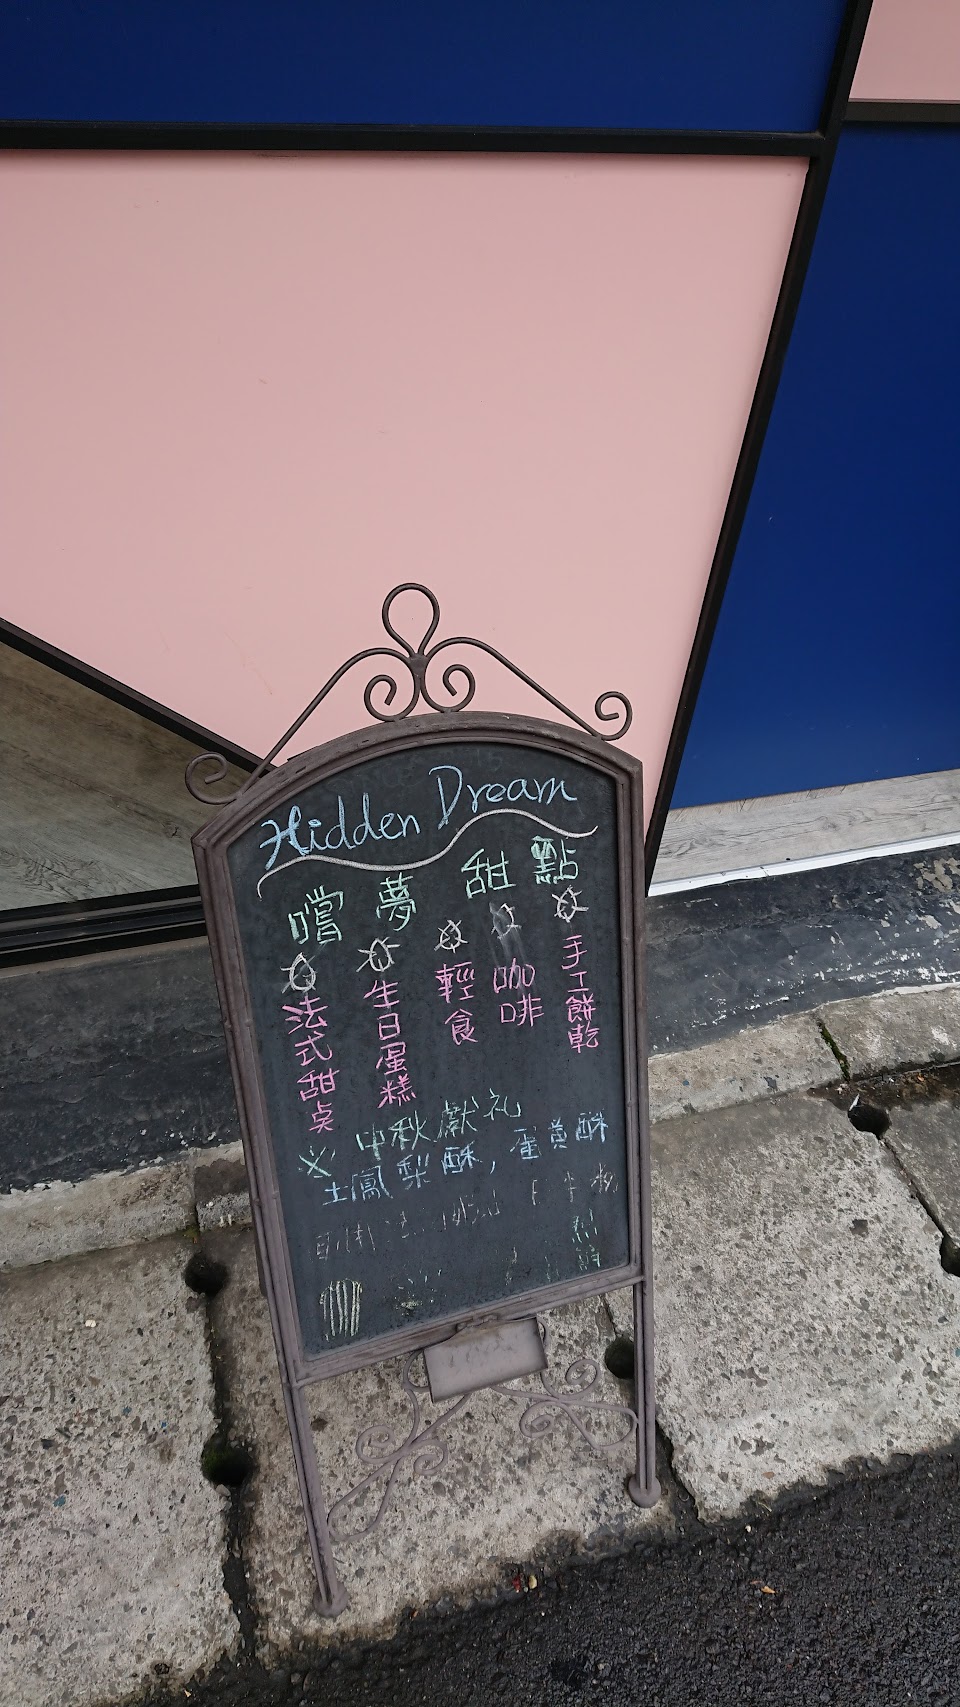 Hidden Dream
嚐夢甜點
法式甜点
生日蛋糕
輕食
咖啡
手工餅乾
※ 中秋獻礼
土鳳梨酥，蛋黃酥